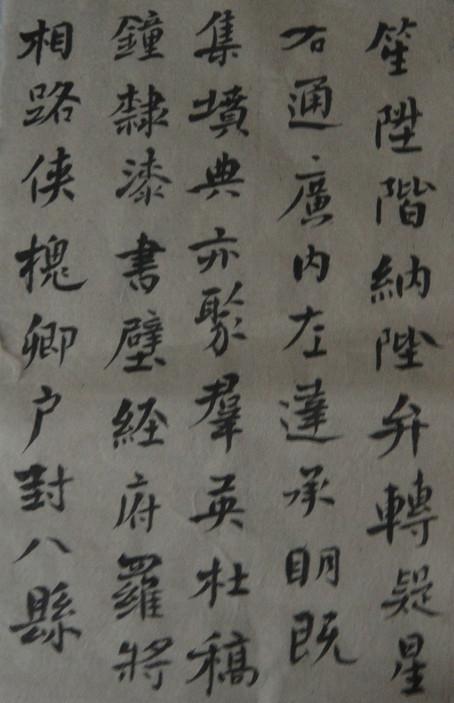 笙陞階納陛弁轉疑星
右通廣內左達承明既
集墳典亦聚羣英杜稿
鐘隸漆書壁經府羅將
相路俠槐卿户對八縣